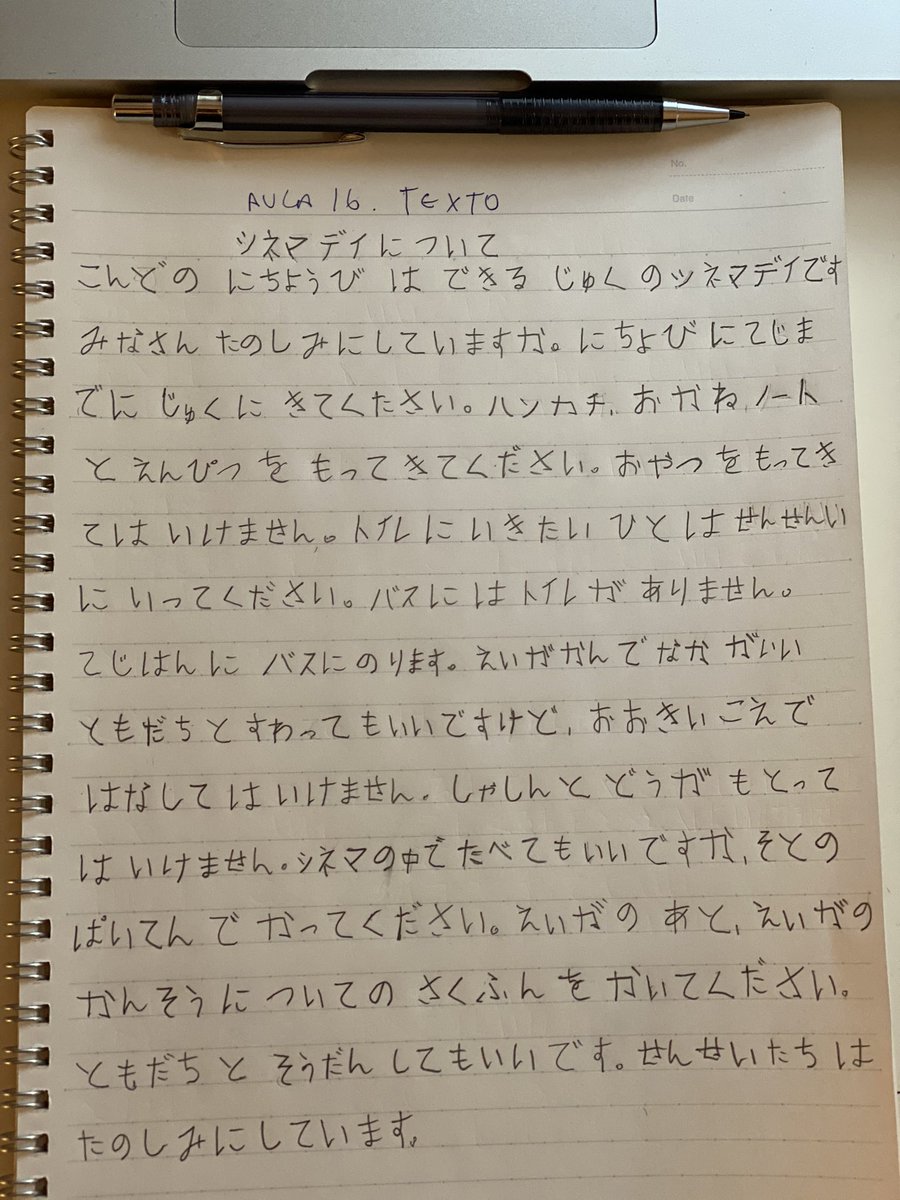 No.
Date
AULA 16. TEXTO
シネマデイについて
こんどの にちようび は できる じゅくのツネマデイです
みなさん たのしみにしていますか。にちよび にてじま
でに じゅくに きてくたさい。ハンカチ、おかね、ノート
と えんぴつ を もってきてください。おやつをもってき
ては いけません。トイレにいきたい ひとは せんせんい
に いってください。バスにはトイレが ありません。
てじはんに バスにのります。えいがかんで なか がいい
ともだちと すわってもいいですけど、おおきい こえで
はなしては いけません。しゃしんと どうが もとって
は いけません。シネマの中で たべてもいいですが、そとの
ばいてんで かってください。えいがの あと、えいがの
かんそうについての さくふん を かいてください。
ともだちと そうだんしてもいいです。せんせいたちは
たのしみにしています。